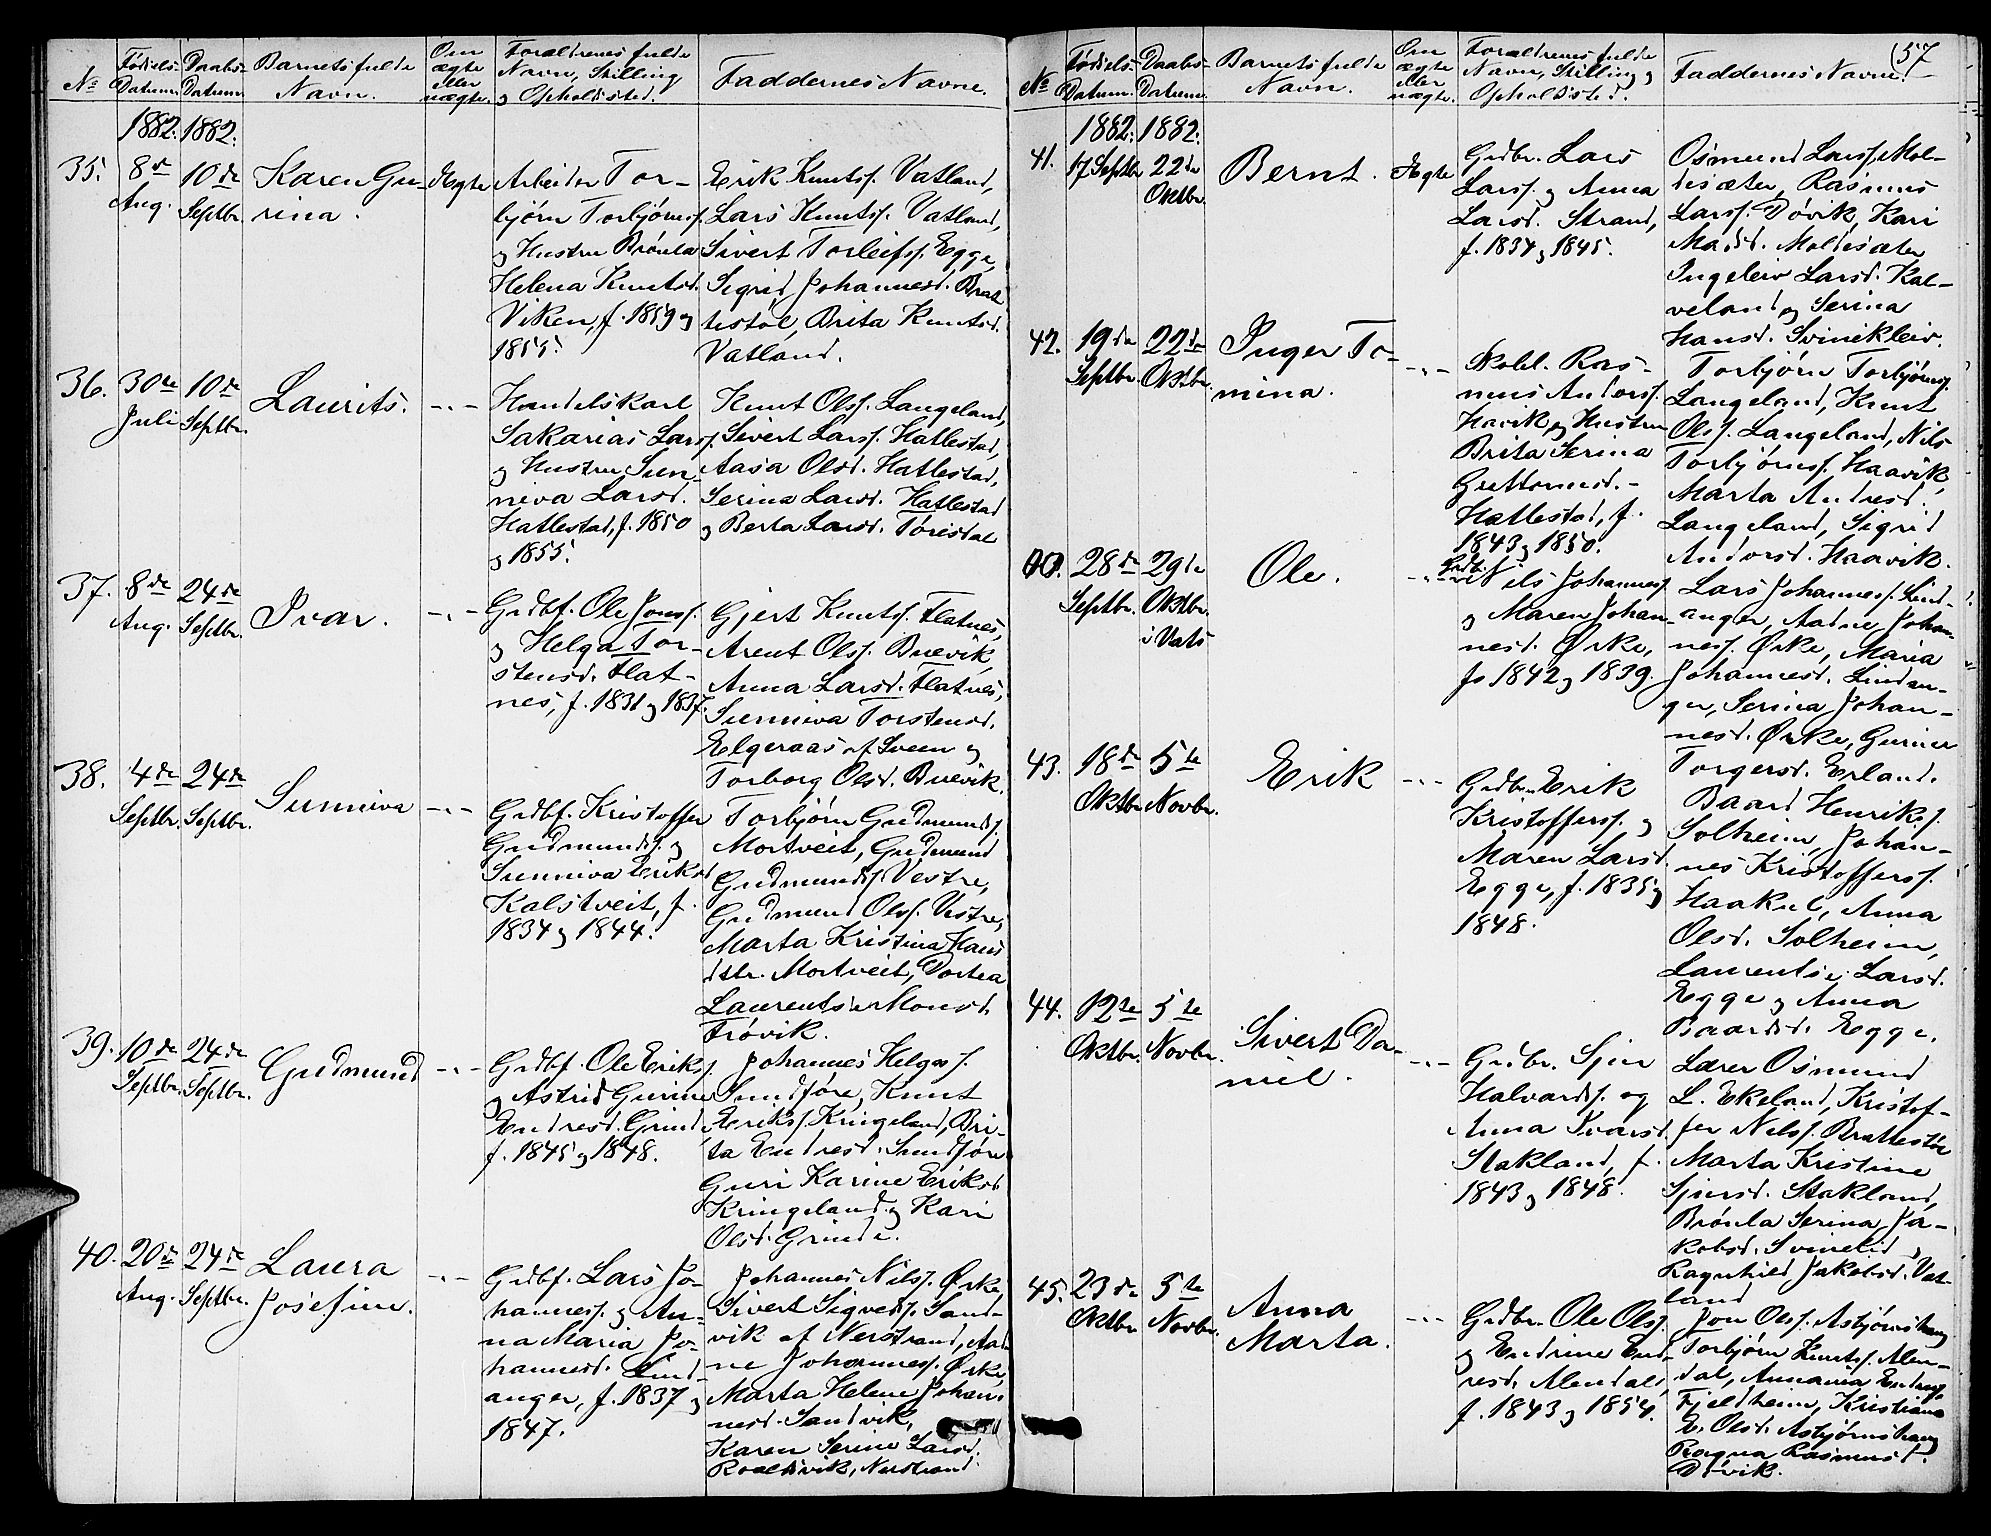 57
No
Fødsels-
Datum.
Daabs-
Datum.
Barnets fulde
Navn.
Om
ægte
eller
uægte.
Forældrenes fulde
Navn, Stilling
og Opholdssted.
Faddernes Navne.
1882. 1882.
35.
8de
Aug.
10de
Septbr.
Karen Gu-
rina.
Ægte
Arbeider Tor-
bjørn Torbjørnss.
og Hustru Brønla
Helena Knutsd.
Viken, f. 1859 og
1855.
Erik Knutss. Vatland,
Lars Knutss. Vatland,
Sivert Torleifss. Egge,
Sigrid Johannesd. Brat
testøl, Brita Knutsd.
Vatland.
36.
30te
Juli
10de
Septbr.
Laurits.
-"-
Handelskarl
Sakarias Larss.
og Hustru Sun-
niva Larsd.
Hatlestad, f. 1850
og 1855.
Knut Olss. Langeland,
Sivert Larss. Hatlestad,
Aasa Olsd. Hatlestad,
Serina Larsd. Hatlestad
og Berta Larsd. Torestal
37.
8de
Aug.
24de
Septbr.
Ivar.
-"-
Grdbf. Ole Jonss.
og Helga Tor-
stensd. Flat-
nes, f. 1831 og 1837.
Gjert Knutss. Flatnes,
Arent Olss. Buevik,
Anna Larsd. Flatnes,
Sunniva Torstensd.
Elgeraas af Sveen og
Torborg Olsd. Buevik.
38.
4de
Septbr.
24de
Septbr.
Sunniva
-"-
Grdbf. Kristoffer
Gudmundss. og
Sunniva Eriksd
Kalstveit, f.
1834 og 1844.
Torbjørn Gudmundss.
Mortveit, Gudmund
Gudmundss. Vestre,
Gudmund Olss. Vestre,
Marta Kristina Hans
dtr. Mortveit, Dortea
Laurentse Monsd.
Frøvik.
39.
10de
Septbr.
24de
Septbr.
Gudmund
-"-
Grdbf. Ole Erikss.
og Astrid Gurine
Endresd. Grinde,
f. 1845 og 1848.
Johannes Helgess.
Sundføre, Knut
Erikss. Kringeland, Bri-
ta Endresd. Sundføre
Guri Karine Eriksd
Kringeland og Kari
Olsd. Grinde.
40.
20de
Aug.
24de
Septbr.
Laura
Josefine.
-"-
Grdbf. Lars Jo-
hanness. og An-
na Maria Jo-
hannesd. Lind-
anger, f. 1837 og
1847.
Johannes Nilss. Ørke,
Sivert Sigvedss. Sand-
vik af Nerstrand, Aad-
ne Johanness. Ørke,
Marta Helene Johan-
nesd. Sandvik,
Karen Serine Larsd.
Roaldsvik, Nerstrand.
No
Fødsels-
Datum.
Daabs-
Datum.
Barnets fulde
Navn.
Om
ægte
eller
uægte.
Forældrenes fulde
Navn, Stilling og
Opholdssted.
Faddernes Navne.
1882. 1882.
41.
17 Septbr
22de
Oktbr.
Bernt.
Ægte
Grdbr. Lars
Larss. og Anna
Larsd. Strand,
f. 1834 og 1845.
Osmund Larss. Mol-
desæter, Rasmus
Larss. Døvik, Kari
Madsd. Moldesæter
Ingeleiv Larsd. Kal-
veland og Serina
Hansd. Svinekleiv.
42.
19de
Septbr.
22de
Oktbr.
Inger To-
mina.
-"-
Skoel. Ras-
mus Anderss.
Havik og Hustru
Brita Serina
Guttormsd.-
Hatlestad, f.
1843 og 1850.
Torbjørn Torbjørnss.
Langeland, Knut
Olss. Langeland, Nils
Torbjørnss. Haavik,
Marta Andresd.
Langeland, Sigrid
Andersd. Haavik.
00.
28de
Septbr.
29de
Oktbr.
i Vats
Ole.
-"-
Grdb.
Nils Johanness.
og Maren Johan-
nesd. Ørke,
f. 1842 og 1839.
Lars Johanness. Lind-
anger, Aadne Johan-
ness. Ørke, Maria
Johannesd. Lindan-
ger, Serina Johan-
nesd. Ørke, Guriner
Torgersd. Erland.
43.
18de
Oktbr.
5te
Novbr.
Erik
-"-
Grdbr. Erik
Kristofferss. og
Maren Larsd.
Egge, f. 1835 og
1848.
Baard Henrikss.
Solheim, Johan-
nes Kristofferss.
Haakul, Anna
Olsd. Solheim,
Laurentse Larsd.
Egge og Anna
Baardsd. Egge.
44.
12te
Oktbr.
5te
Novbr.
Sivert Da-
niel.
-"-
Grdbr. Sjur
Halvardss. og
Anna Ivarsd.
Stakland, f.
1843 og 1848.
Lærer Osmund
L. Ekeland, Kristof-
fer Nilss. Brattestøl
Marta Kristine
Sjursd. Stakland,
Brønla Serina Ja-
kobsd. Svinelid,
Ragnhild Jakobsd. Vat-
land
45.
23de
Oktbr.
5te
Novbr.
Anna
Marta.
-"-
Grdbr. Ole Olss.
og Endrine End-
resd. Alendal,
f. 1843 og 1854.
Jon Olss. Asbjørnshaug
Torbjørn Knutss. Alen-
dal, Annania Endresd.
Fjeldheim, Kristiane
E. Olsd. Asbjørnshaug
Ragna Rasmusd.
Døvik.